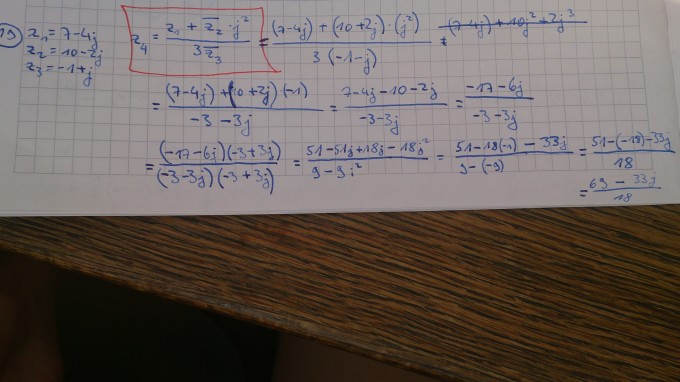 19) z₁ = 7-4j
z₂ = 10-2j
z₃ = -1+j
z₄ = (z₁ + z̅₂ · j²) / (3z̅₃) = ((7-4j) + (10+2j) · (j²)) / (3(-1-j))
= ((7-4j) + (10+2j) · (-1)) / (-3-3j) = (7-4j-10-2j) / (-3-3j) = (-17-6j) / (-3-3j)
= ((-17-6j)(-3+3j)) / ((-3-3j)(-3+3j)) = (51-51j+18j-18j²) / (9-9j²) = (51-18(-1)-33j) / (9-(-9)) = (51-(-18)-33j) / 18
= (69-33j) / 18